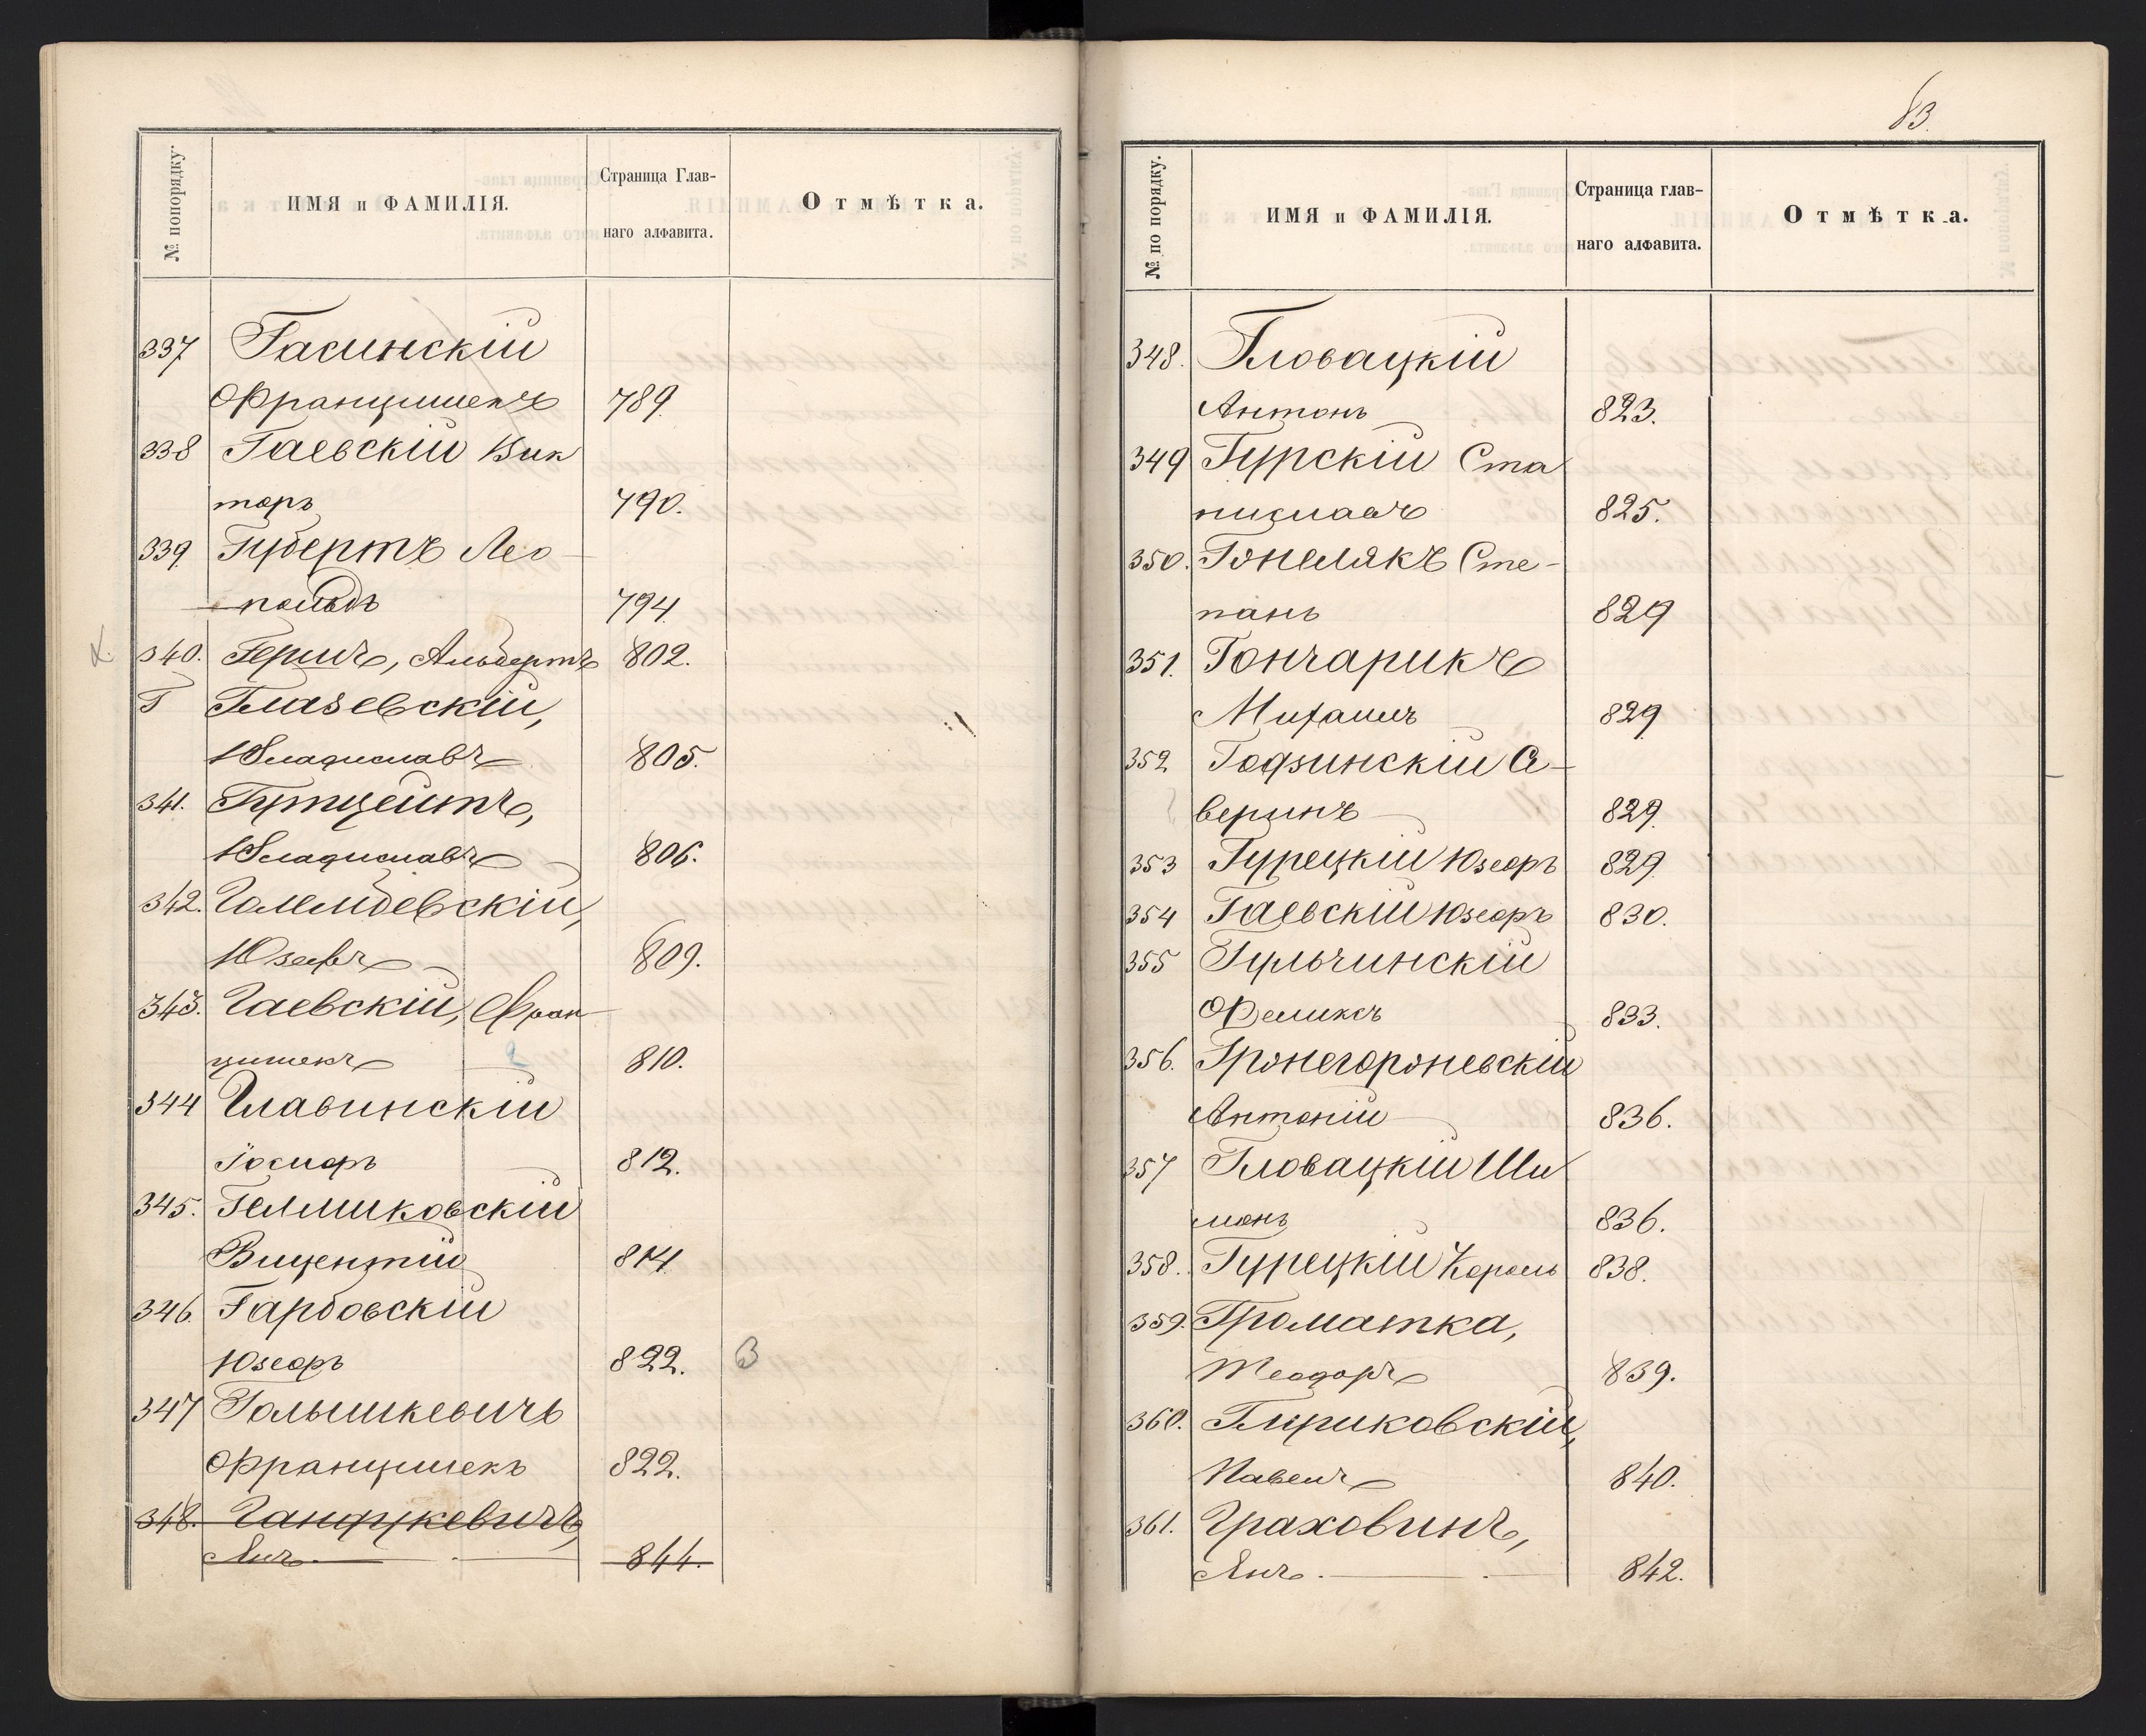 № попорядку.
ИМЯ и ФАМИЛІЯ.
Страница Глав-
наго алфавита.
Отмѣтка.
337 Гасинскій
Францишекъ 789.
338 Гаевскій Вик
торъ 790.
339 Губертъ Лео-
польдъ 794.
340. Геричъ, Альбертъ 802.
Глазевскій,
Владиславъ 805.
341. Гутцейтъ,
Владиславъ 806.
342. Голембевскій,
Юзефъ 809.
343. Гаевскій, Фран-
цишекъ 810.
344 Главинскій
Іосифъ 812.
345. Гелмиковскій
Вицентій 814
346. Гарбовскій
Юзефъ 822. В
347 Голышкевичъ
Францишекъ 822.
348. Ганцкевичъ,
Янъ. 844.
83.
№ по порядку.
ИМЯ и ФАМИЛІЯ.
Страница глав-
наго алфавита.
Отмѣтка.
348. Гловацкій
Антонъ 823.
349 Гурскій Ста
ниславъ 825.
350. Гонелякъ Сте-
панъ 829
351. Гончарикъ
Михаилъ 829
352 Годзинскій Се-
веринъ 829.
353 Гурецкій Юзефъ 829.
354 Гаевскій Юзефъ 830.
355 Гульчинскій
Феликсъ 833.
356. Гронегороневскій
Антоній 836.
357 Гловацкій Ши
монъ 836.
358. Гурецкій Кароль 838.
359. Громатка,
Теодоръ 839.
360. Гириковскій,
Павелъ 840.
361. Граховинъ,
Янъ. 842.